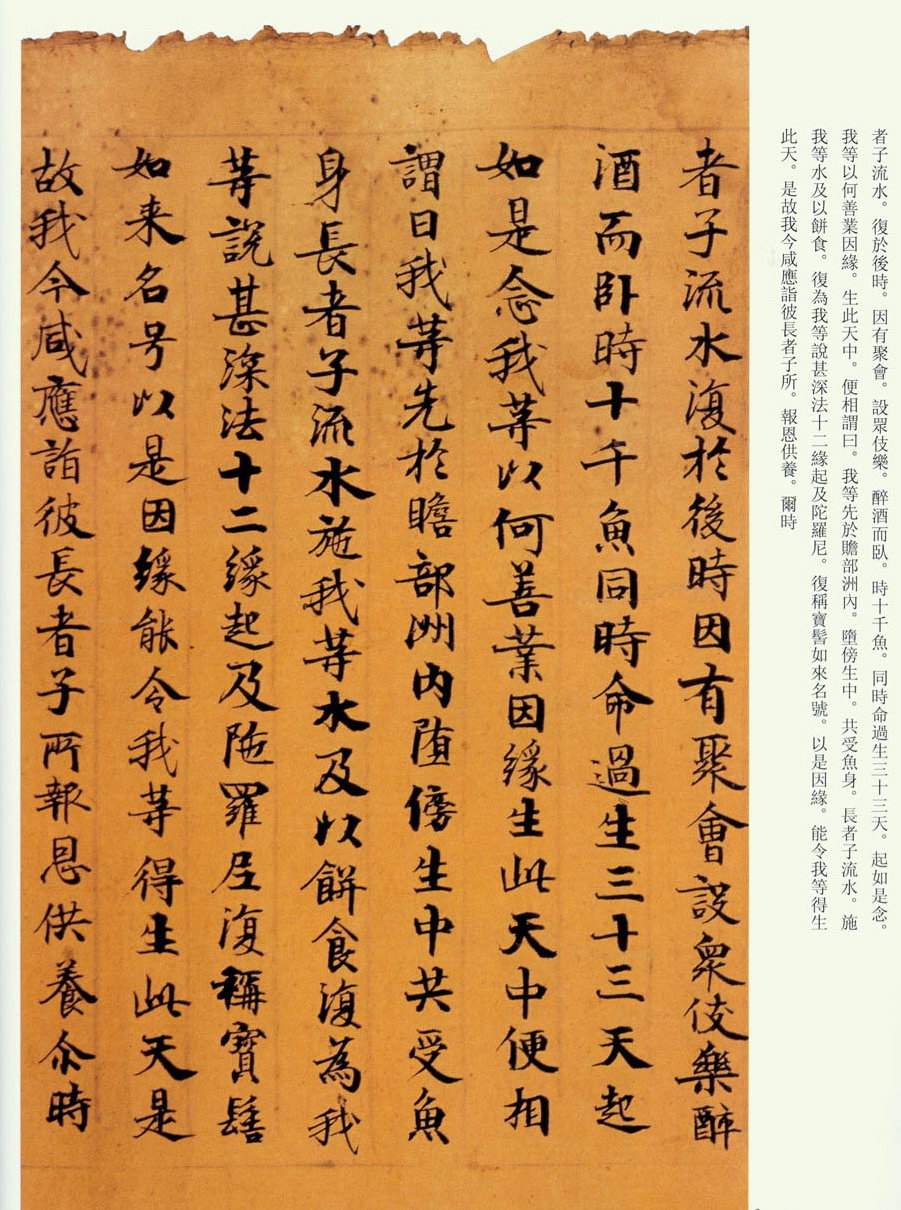 者子流水。復於後時。因有聚會。設眾伎樂。醉酒而臥。時十千魚。同時命過生三十三天。起如是念。
我等以何善業因緣。生此天中。便相謂曰。我等先於贍部洲內。墮傍生中。共受魚身。長者子流水。施
我等水及以餅食。復為我等說甚深法十二緣起及陀羅尼。復稱寶髻如來名號。以是因緣。能令我等得生
此天。是故我今咸應詣彼長者子所。報恩供養。爾時
者子流水復於後時因有聚會設眾伎樂醉
酒而卧時十千魚同時命過生三十三天起
如是念我等以何善業因緣生此天中便相
謂曰我等先於瞻部洲内堕傍生中共受魚
身長者子流水施我等水及以餅食復為我
等說甚深法十二緣起及陁羅尼復稱寶髻
如来名号以是因緣能令我等得生此天是
故我今咸應詣彼長者子所報恩供養尒時